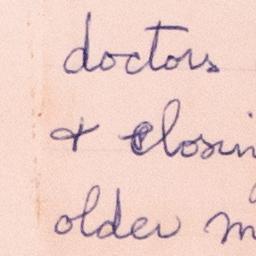 doctors
& closin
older m